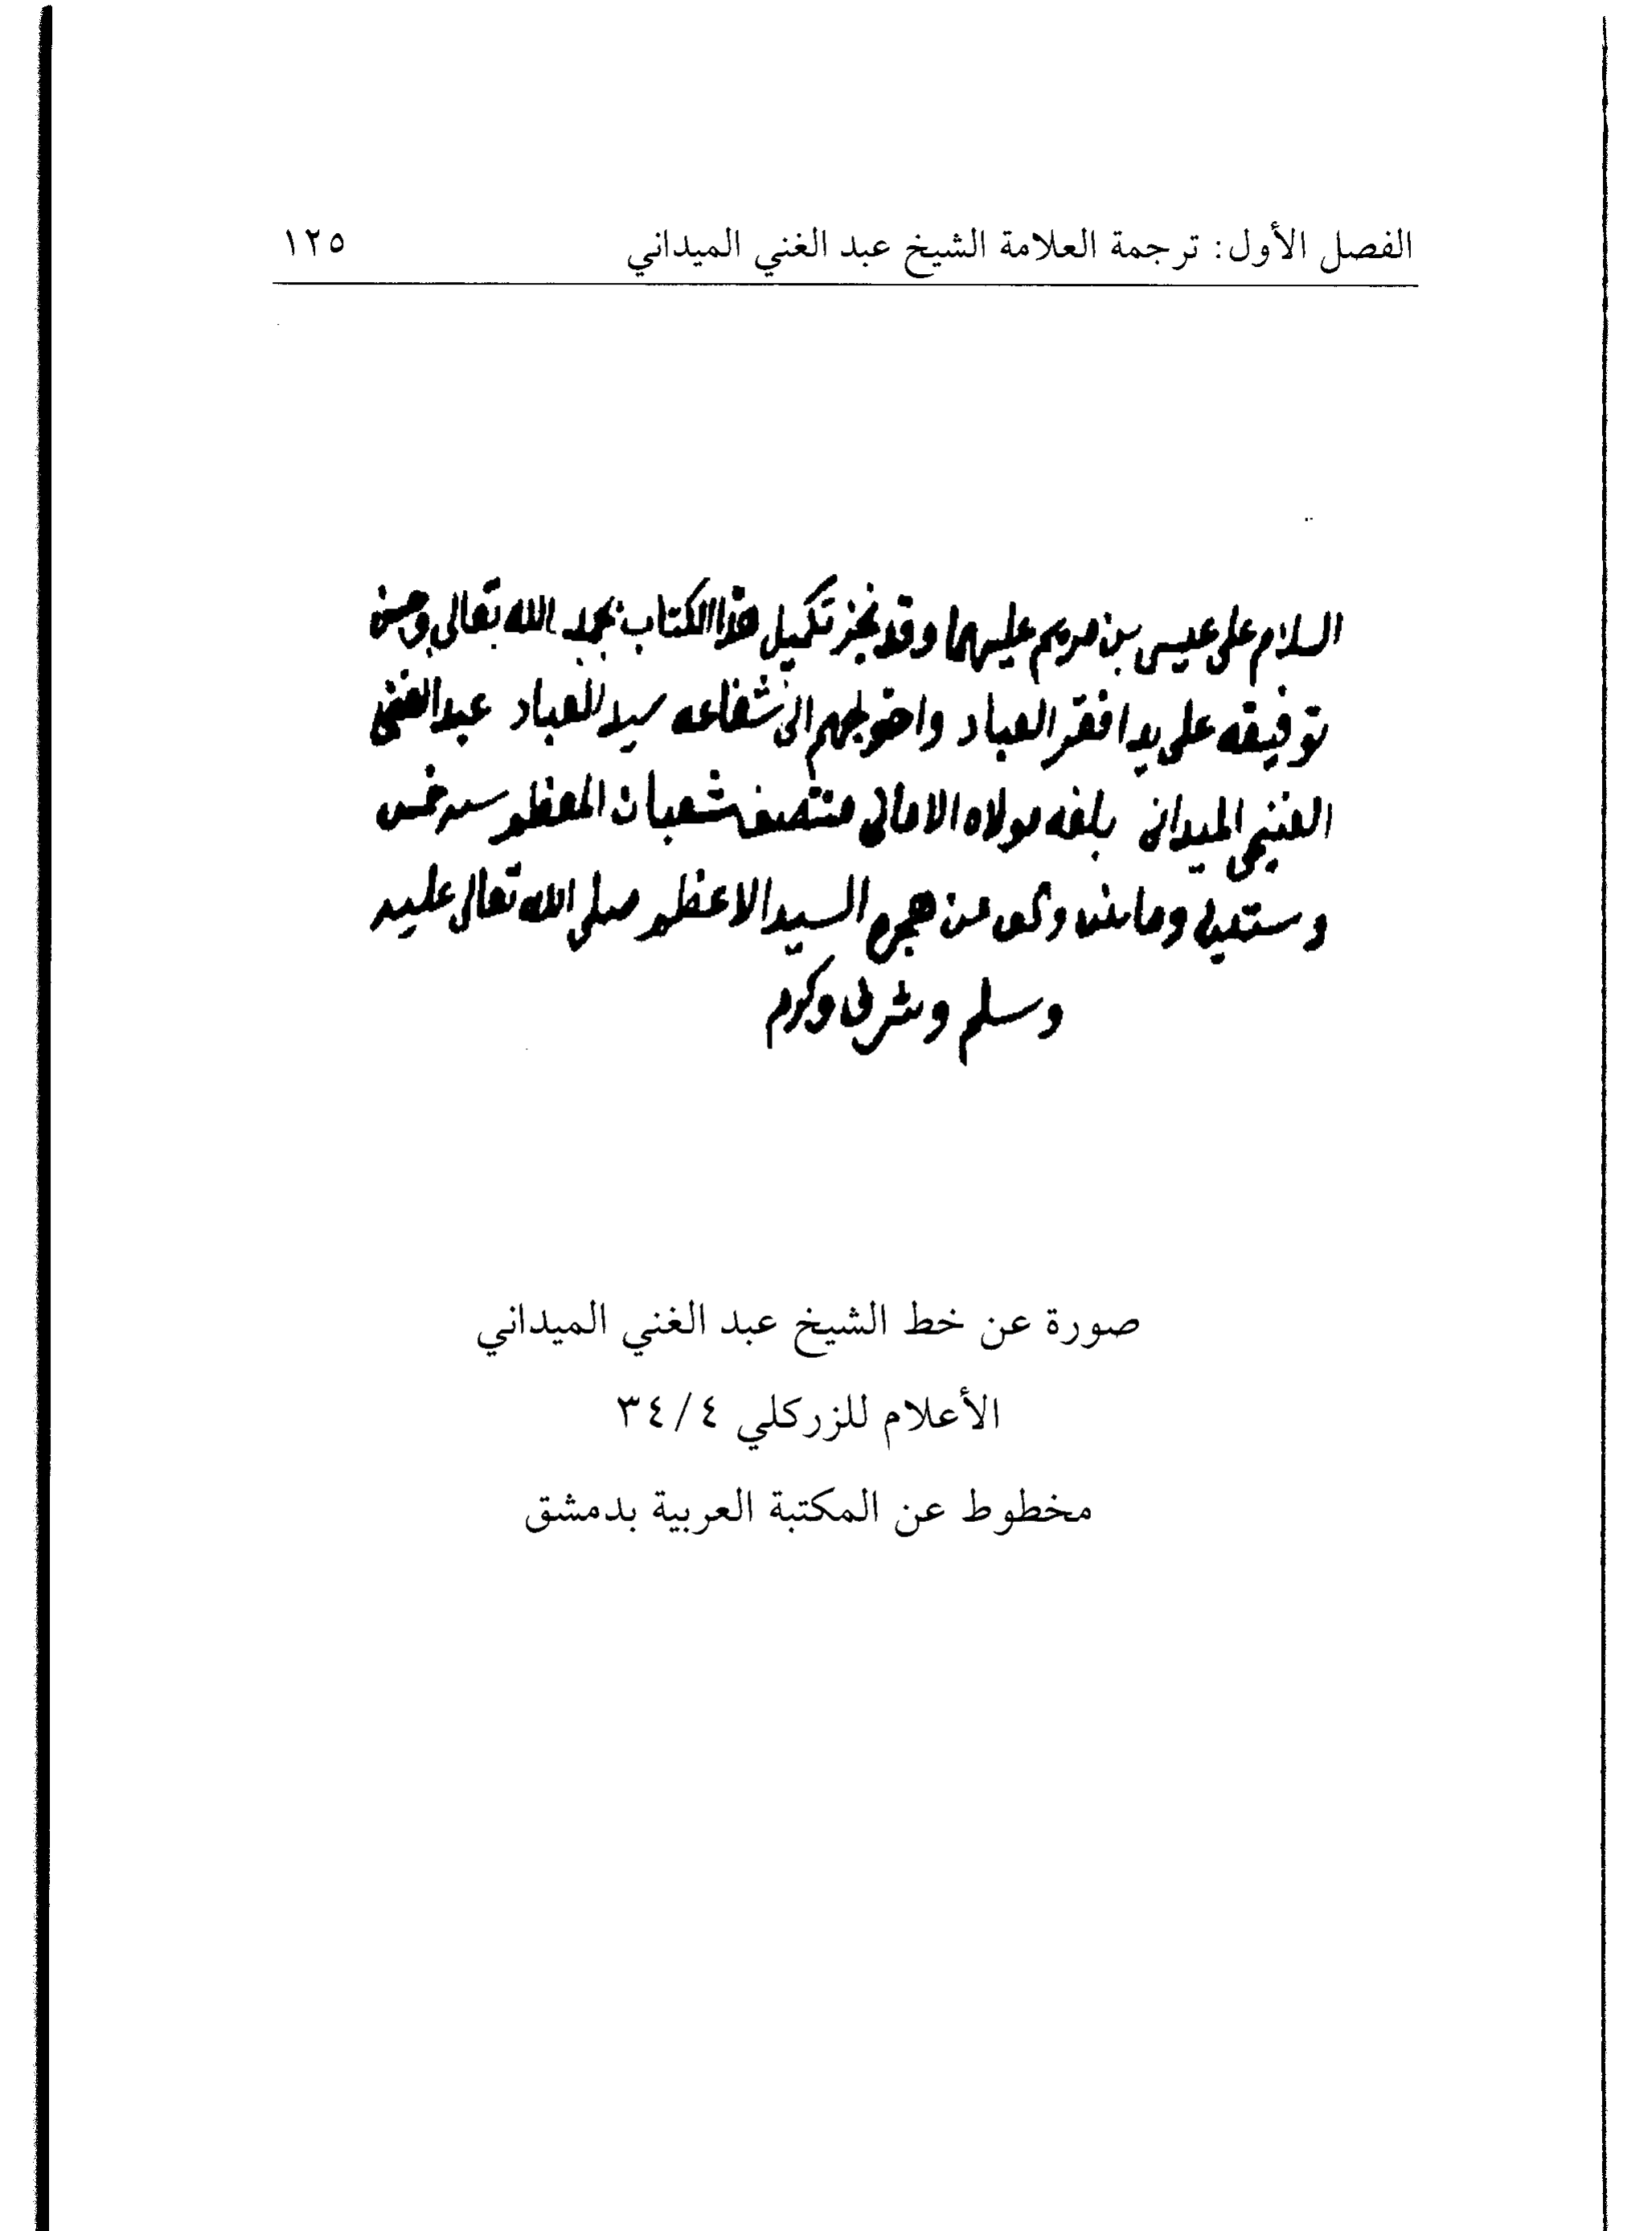 الفصل الأول: ترجمة العلامة الشيخ عبد الغني الميداني ١٢٥
السلام على عيسى بن مريم عليهما وقد نجز تكميل هذا الكتاب بحمد الله تعالى وحسن
توفيقه على يد افقر العباد واحوجهم الى شفاعه سيد العباد عبد الغني
الغنيمي الميداني بلغه مولاه الاماني منتصف شعبان المعظم سنه خمس
وستين ومايتين والف من هجرة السيد الاعظم صلى الله تعالى عليه
وسلم وشرف وكرم
صورة عن خط الشيخ عبد الغني الميداني
الأعلام للزركلي ٣٤/٤
مخطوط عن المكتبة العربية بدمشق